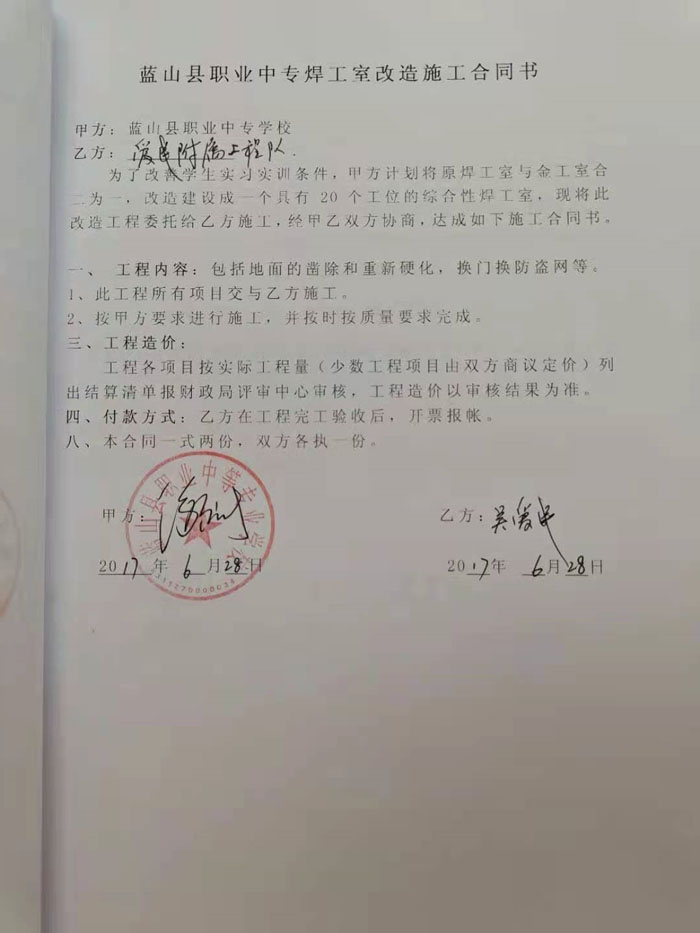 蓝山县职业中专焊工室改造施工合同书
甲方：蓝山县职业中专学校
乙方：爱民附属工程队.
为了改善学生实习实训条件，甲方计划将原焊工室与金工室合
二为一，改造建设成一个具有 20 个工位的综合性焊工室，现将此
改造工程委托给乙方施工，经甲乙双方协商，达成如下施工合同书。
一、 工程内容：包括地面的凿除和重新硬化，换门换防盗网等。
1、此工程所有项目交与乙方施工。
2、按甲方要求进行施工，并按时按质量要求完成。
三、工程造价：
工程各项目按实际工程量（少数工程项目由双方商议定价）列
出结算清单报财政局评审中心审核，工程造价以审核结果为准。
四、付款方式：乙方在工程完工验收后，开票报帐。
八、本合同一式两份，双方各执一份。
蓝山县职业中等专业学校
甲方：
乙方：吴爱民
2017 年 6 月 28 日
2017 年 6 月 28 日